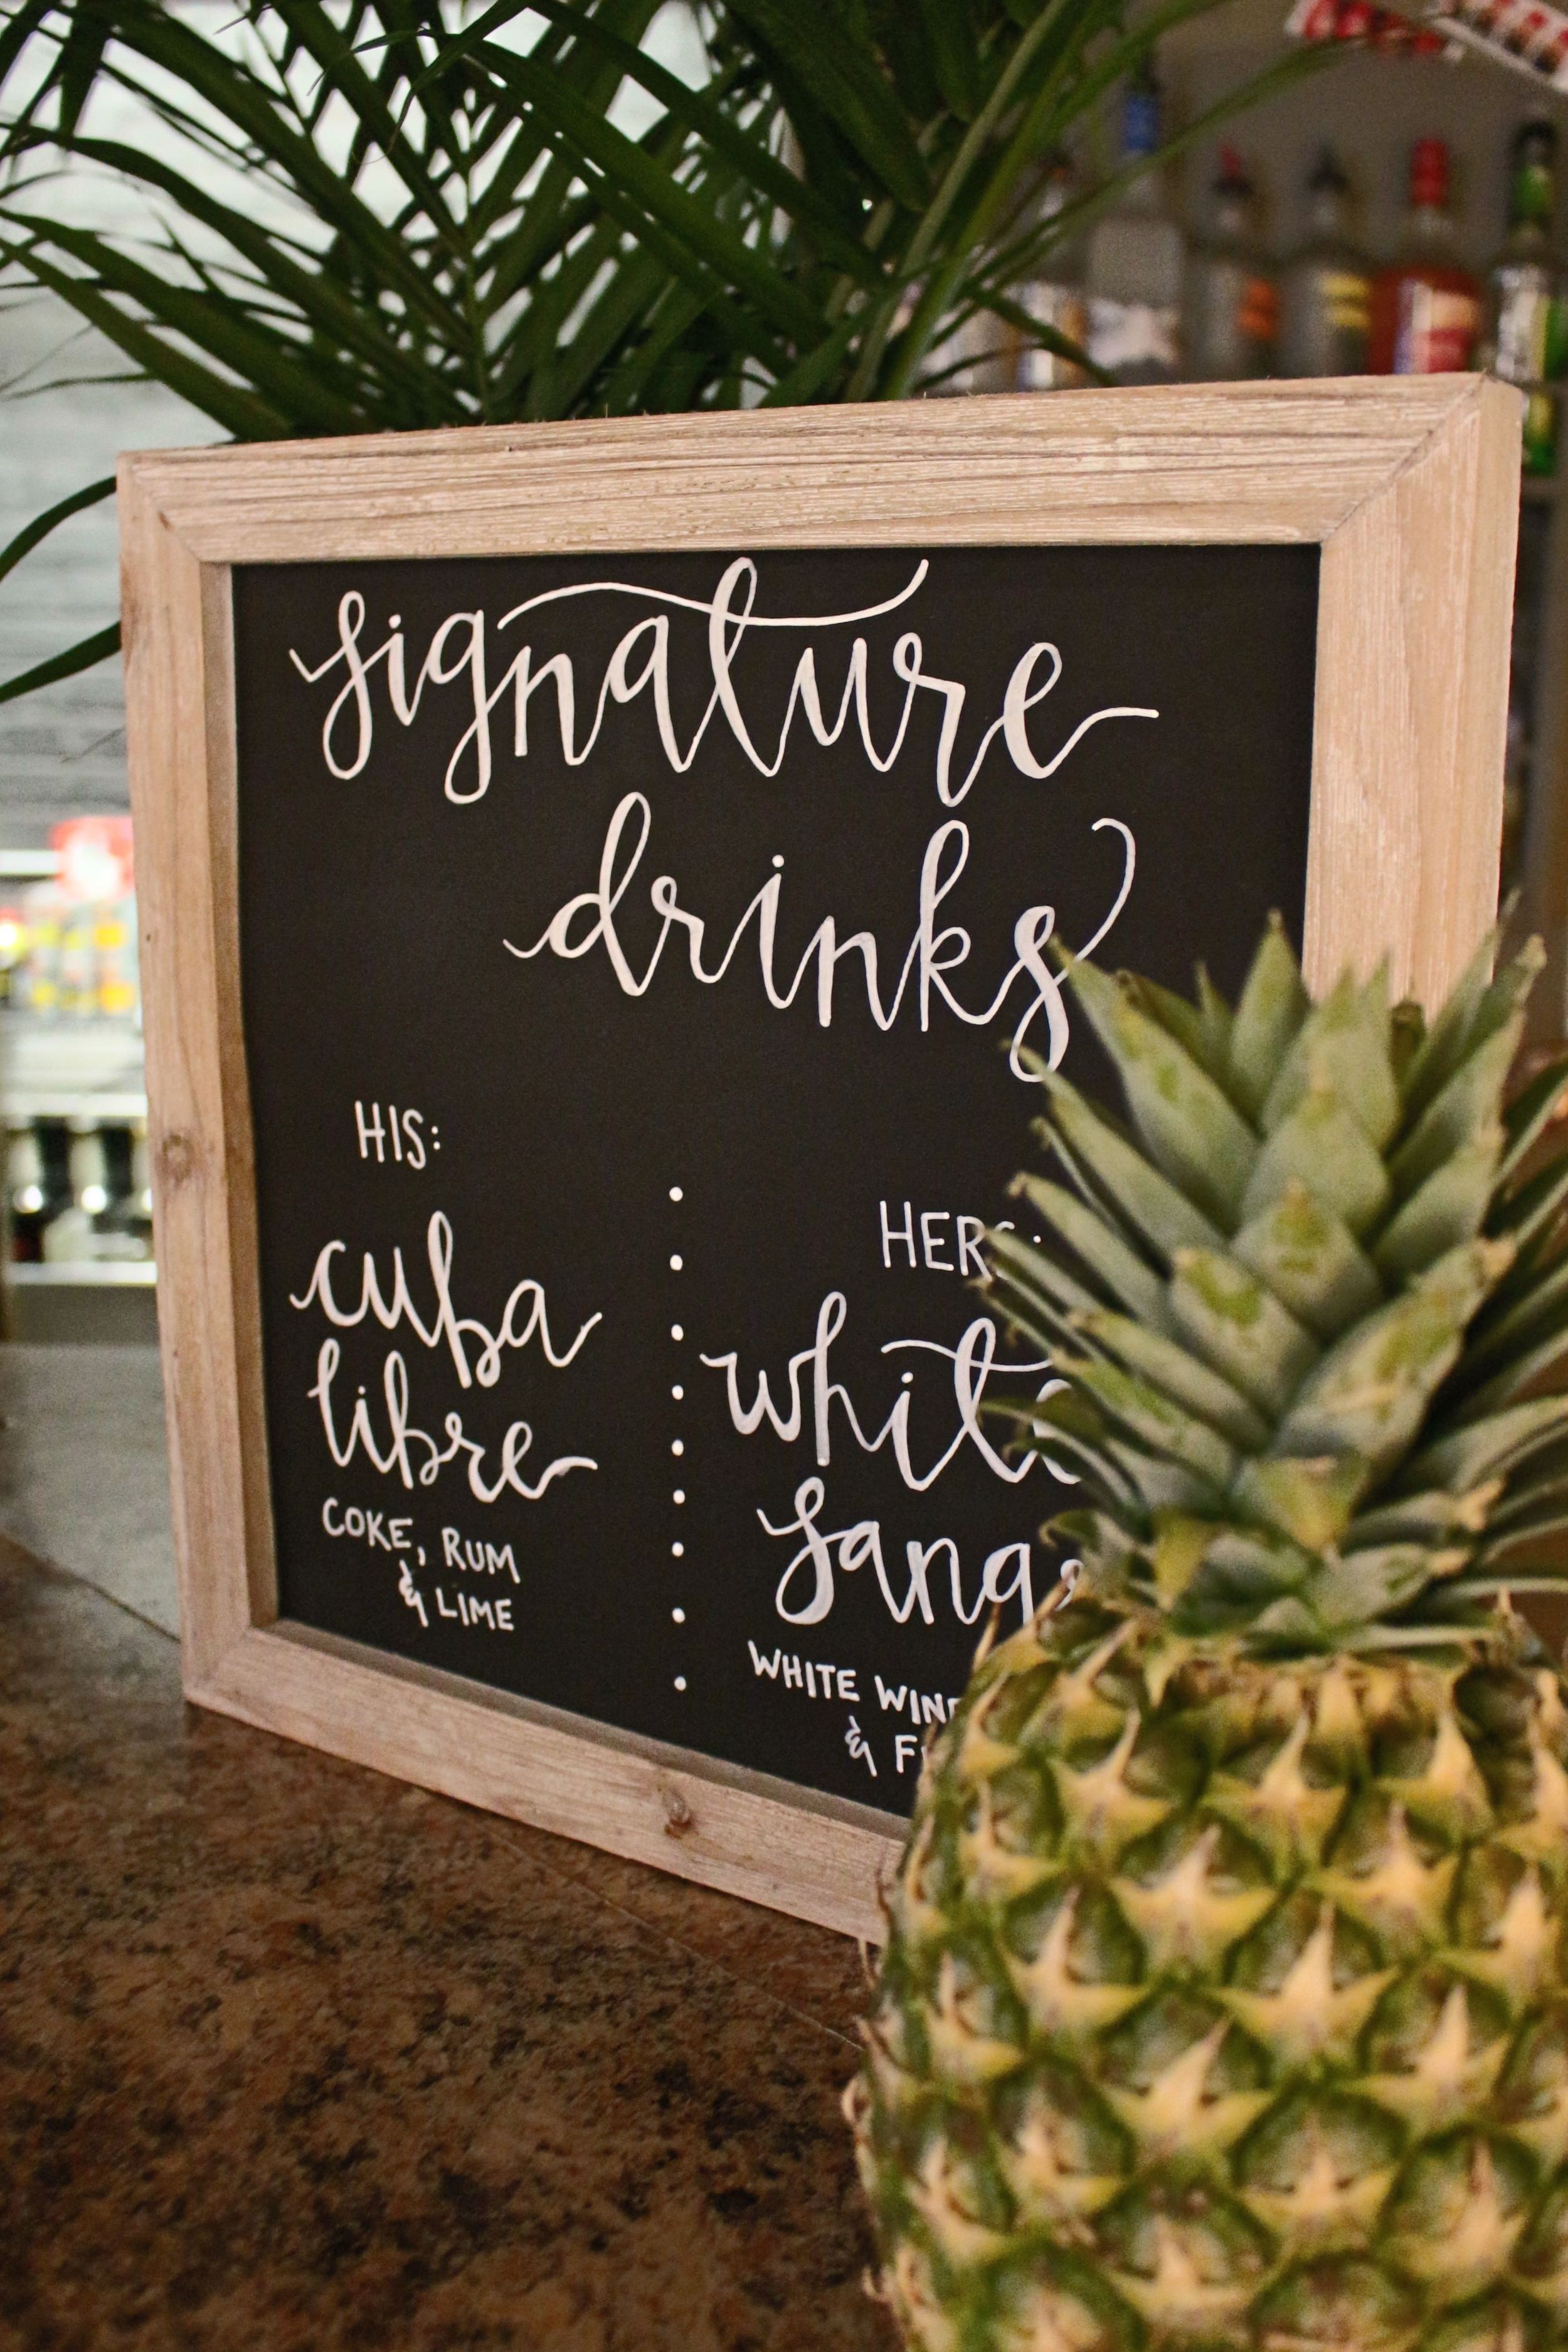 signature
drinks
HIS:
cuba
libre
COKE, RUM
& LIME
HERS:
white
WHITE WINE
&